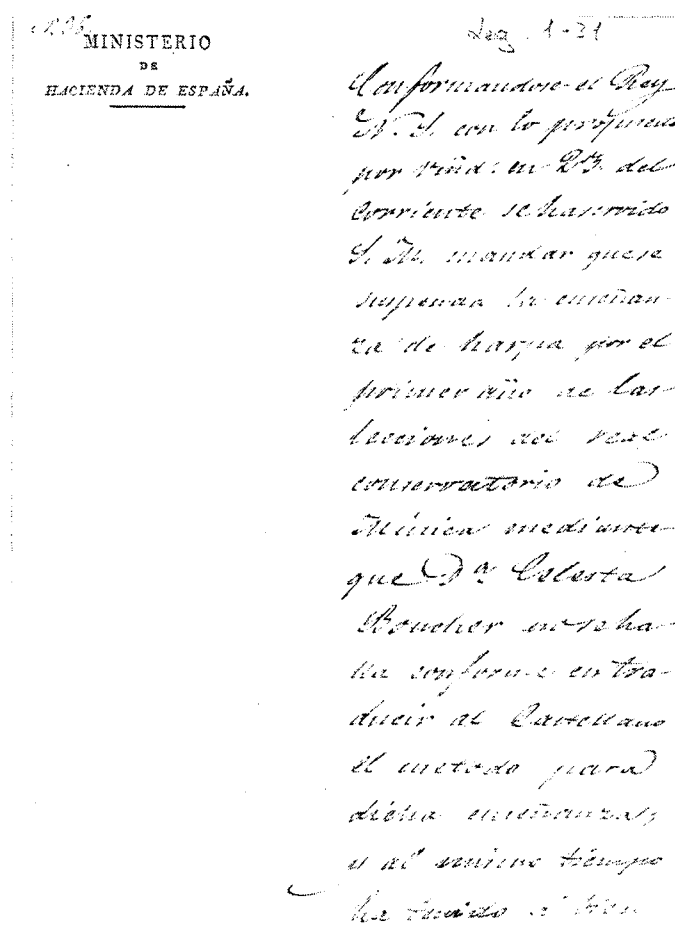 Leg. 1-31
MINISTERIO
DE
HACIENDA DE ESPAÑA.
Conformandose el Rey
N. S. con lo propuesto
por en 23. del
Corriente se ha servido
S. M. mandar que se
suspenda la enseñan-
za de harpa por el
primer año de las
lecciones del real
conservatorio de
Música mediante
que D.ª Celesta
Boucher no se ha-
lla conforme en tra-
ducir al Castellano
el metodo para
dicha enseñanza;
y al mismo tiempo
ha tenido á bien